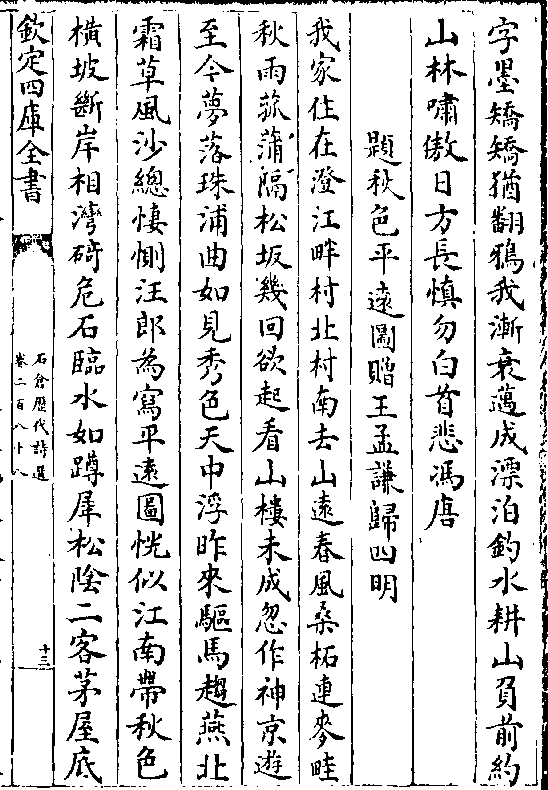 字墨矯矯猶翻鴉我漸衰邁成漂泊釣水耕山負前約
山林嘯傲日方長慎勿白首悲馮唐
題秋色平遠圖贈王孟謙歸四明
我家住在澄江畔村北村南去山遠春風桑柘連麥畦
秋雨菰蒲隔松坂幾回欲起看山樓未成忽作神京遊
至今夢落珠浦曲如見秀色天中浮昨來驅馬趨燕北
霜草風沙總悽惻汪郎為寫平遠圖恍似江南帶秋色
橫坡斷岸相灣碕危石臨水如蹲犀松陰二客茅屋底
欽定四庫全書
石倉歷代詩選
卷二百八十八
十三